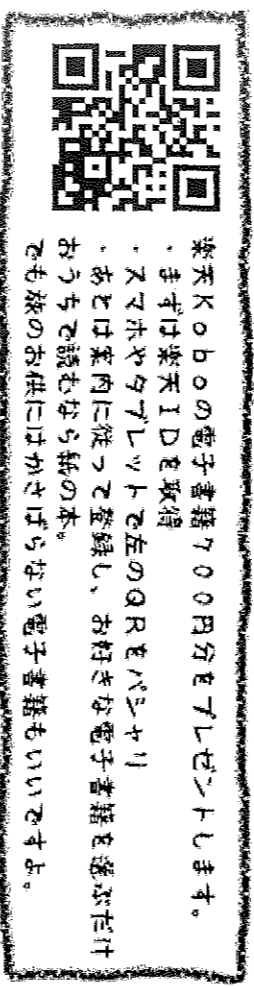 楽天Koboの電子書籍700円分をプレゼントします。
・まずは楽天IDを取得
・スマホやタブレットで左のQRをパシャリ
・あとは案内に従って登録し、お好きな電子書籍を選ぶだけ
おうちで読むなら紙の本。
でも旅のお供にはかさばらない電子書籍もいいですよ。